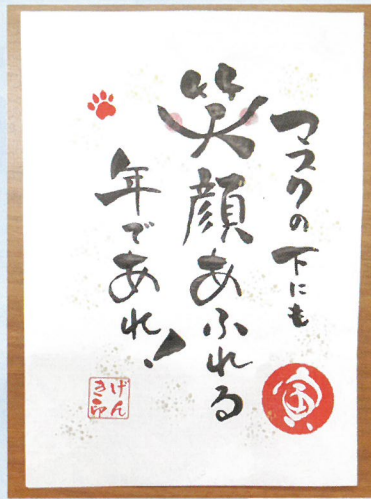 マスクの下にも
笑顔あふれる
年であれ！
寅
げん
き印